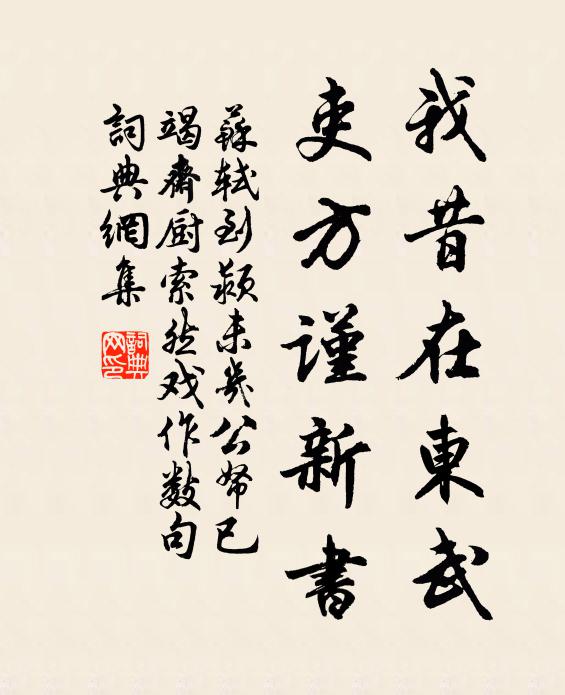 我昔在東武
吏方謹新書
蘇軾到潁未幾公帑已
竭齋厨索然戏作數句
詞典網集
詞典网印